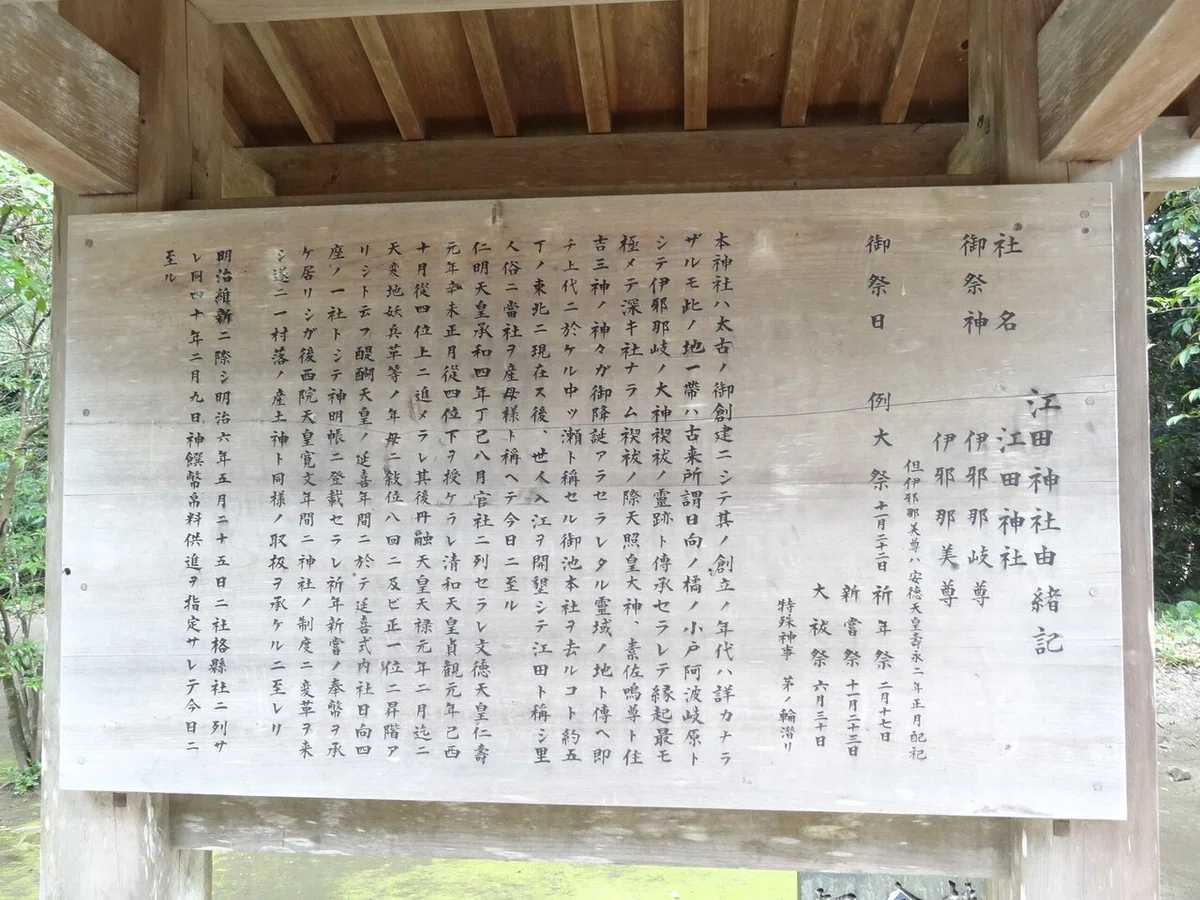 江田神社由緒記
社名　江田神社
御祭神　伊邪那岐尊
伊邪那美尊
但伊邪那美尊ハ安徳天皇壽永二年正月配祀
御祭日　例大祭　十一月二十二日　祈年祭　二月十七日
新嘗祭　十一月二十三日
大祓祭　六月三十日
特殊神事　茅ノ輪潜リ
本神社ハ太古ノ御創建ニシテ其ノ創立ノ年代ハ詳カナラ
ザルモ此ノ地一帶ハ古来所謂日向ノ橘ノ小戸阿波岐原ト
シテ伊邪那岐ノ大神禊祓ノ靈跡ト傳承セラレテ縁起最モ
極メテ深キ社ナラム禊祓ノ際天照皇大神、素佐鳴尊ト住
吉三神ノ神々ガ御降誕アラセラレタル靈域ノ地ト傳ヘ即
チ上代ニ於ケル中ツ瀬ト稱セル御池本社ヲ去ルコト約五
丁ノ東北ニ現在ス後、世人入江ヲ開墾シテ江田ト稱シ里
人俗ニ當社ヲ産母様ト稱ヘテ今日ニ至ル
仁明天皇承和四年丁己八月官社ニ列セラレ文徳天皇仁壽
元年辛未正月從四位下ヲ授ケラレ清和天皇貞観元年己西
十月從四位上ニ進メラレ其後丹融天皇天禄元年二月迄ニ
天変地妖兵革等ノ年毎ニ敍位八回ニ及ビ正一位ニ昇階ア
リシト云フ醍醐天皇ノ延喜年間ニ於テ延喜式内社日向四
座ノ一社トシテ神明帳ニ登載セラレ祈年新嘗ノ奉幣ヲ承
ケ居リシガ後西院天皇寛文年間ニ神社ノ制度ニ変革ヲ来
シ遂ニ一村落ノ産土神ト同様ノ取扱ヲ承ケルニ至レリ
明治維新ニ際シ明治六年五月二十五日ニ社格縣社ニ列サ
レ同四十年二月九日神饌幣帛料供進ヲ指定サレテ今日ニ
至ル